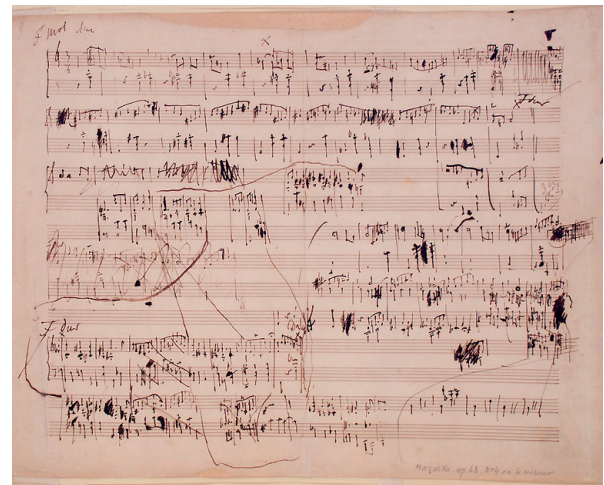 F mol Maz
F dur
F dur
Mazurka op. 68, Nº4 en fa mineur